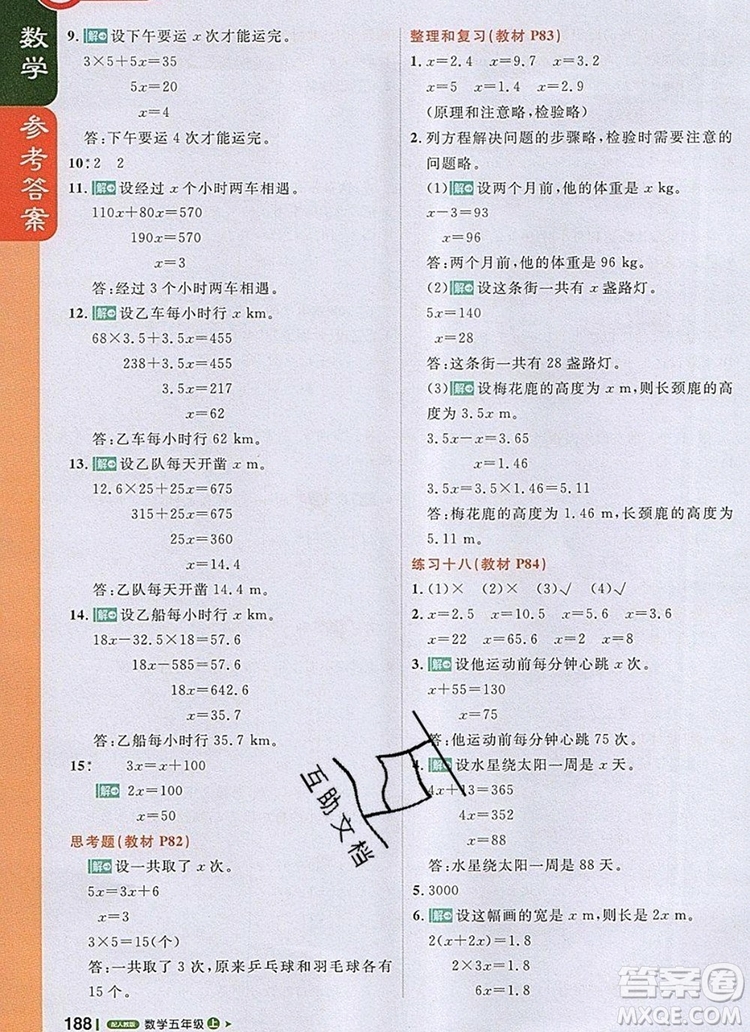 数学
参考答案
9. 解 设下午要运 x 次才能运完。
3×5+5x=35
5x=20
x=4
答:下午要运 4 次才能运完。
10. 2 2
11. 解 设经过 x 个小时两车相遇。
110x+80x=570
190x=570
x=3
答:经过 3 个小时两车相遇。
12. 解 设乙车每小时行 x km。
68×3.5+3.5x=455
238+3.5x=455
3.5x=217
x=62
答:乙车每小时行 62 km。
13. 解 设乙队每天开凿 x m。
12.6×25+25x=675
315+25x=675
25x=360
x=14.4
答:乙队每天开凿 14.4 m。
14. 解 设乙船每小时行 x km。
18x-32.5×18=57.6
18x-585=57.6
18x=642.6
x=35.7
答:乙船每小时行 35.7 km。
15. 3x=x+100
解 2x=100
x=50
思考题(教材 P82)
解 设一共取了 x 次。
5x=3x+6
x=3
3×5=15(个)
答:一共取了 3 次。原来乒乓球和羽毛球各有
15 个。
188 配人教版 数学五年级 上
整理和复习(教材 P83)
1. x=2.4 x=9.7 x=3.2
x=5 x=1.4 x=0.9
(原理和注意略,检验略)
2. 列方程解决问题的步骤略,检验时需要注意的
问题略。
(1) 解 设两个月前,他的体重是 x kg。
x-3=93
x=96
答:两个月前,他的体重是 96 kg。
(2) 解 设这条街一共有 x 盏路灯。
5x=140
x=28
答:这条街一共有 28 盏路灯。
(3) 解 设梅花鹿的高度为 x m,则长颈鹿的高
度为 3.5x m。
3.5x-x=3.65
x=1.46
3.5x=3.5×1.46=5.11
答:梅花鹿的高度为 1.46 m,长颈鹿的高度为
5.11 m。
练习十八(教材 P84)
1. (1)× (2)× (3)√ (4)√
2. x=2.5 x=10.5 x=3.8
x=22 x=65.6 x=2 x=8
3. 解 设他运动前每分钟心跳 x 次。
x+55=130
x=75
答:他运动前每分钟心跳 75 次。
4. 解 设水星绕太阳一周是 x 天。
4x+13=365
x=88
答:水星绕太阳一周是 88 天。
5. 3000
6. 解 设这幅画的宽是 x m,则长是 2x m。
2(x+2x)=1.8
2×3x=1.8
6x=1.8
互助文档
答案圈
MXQE.COM